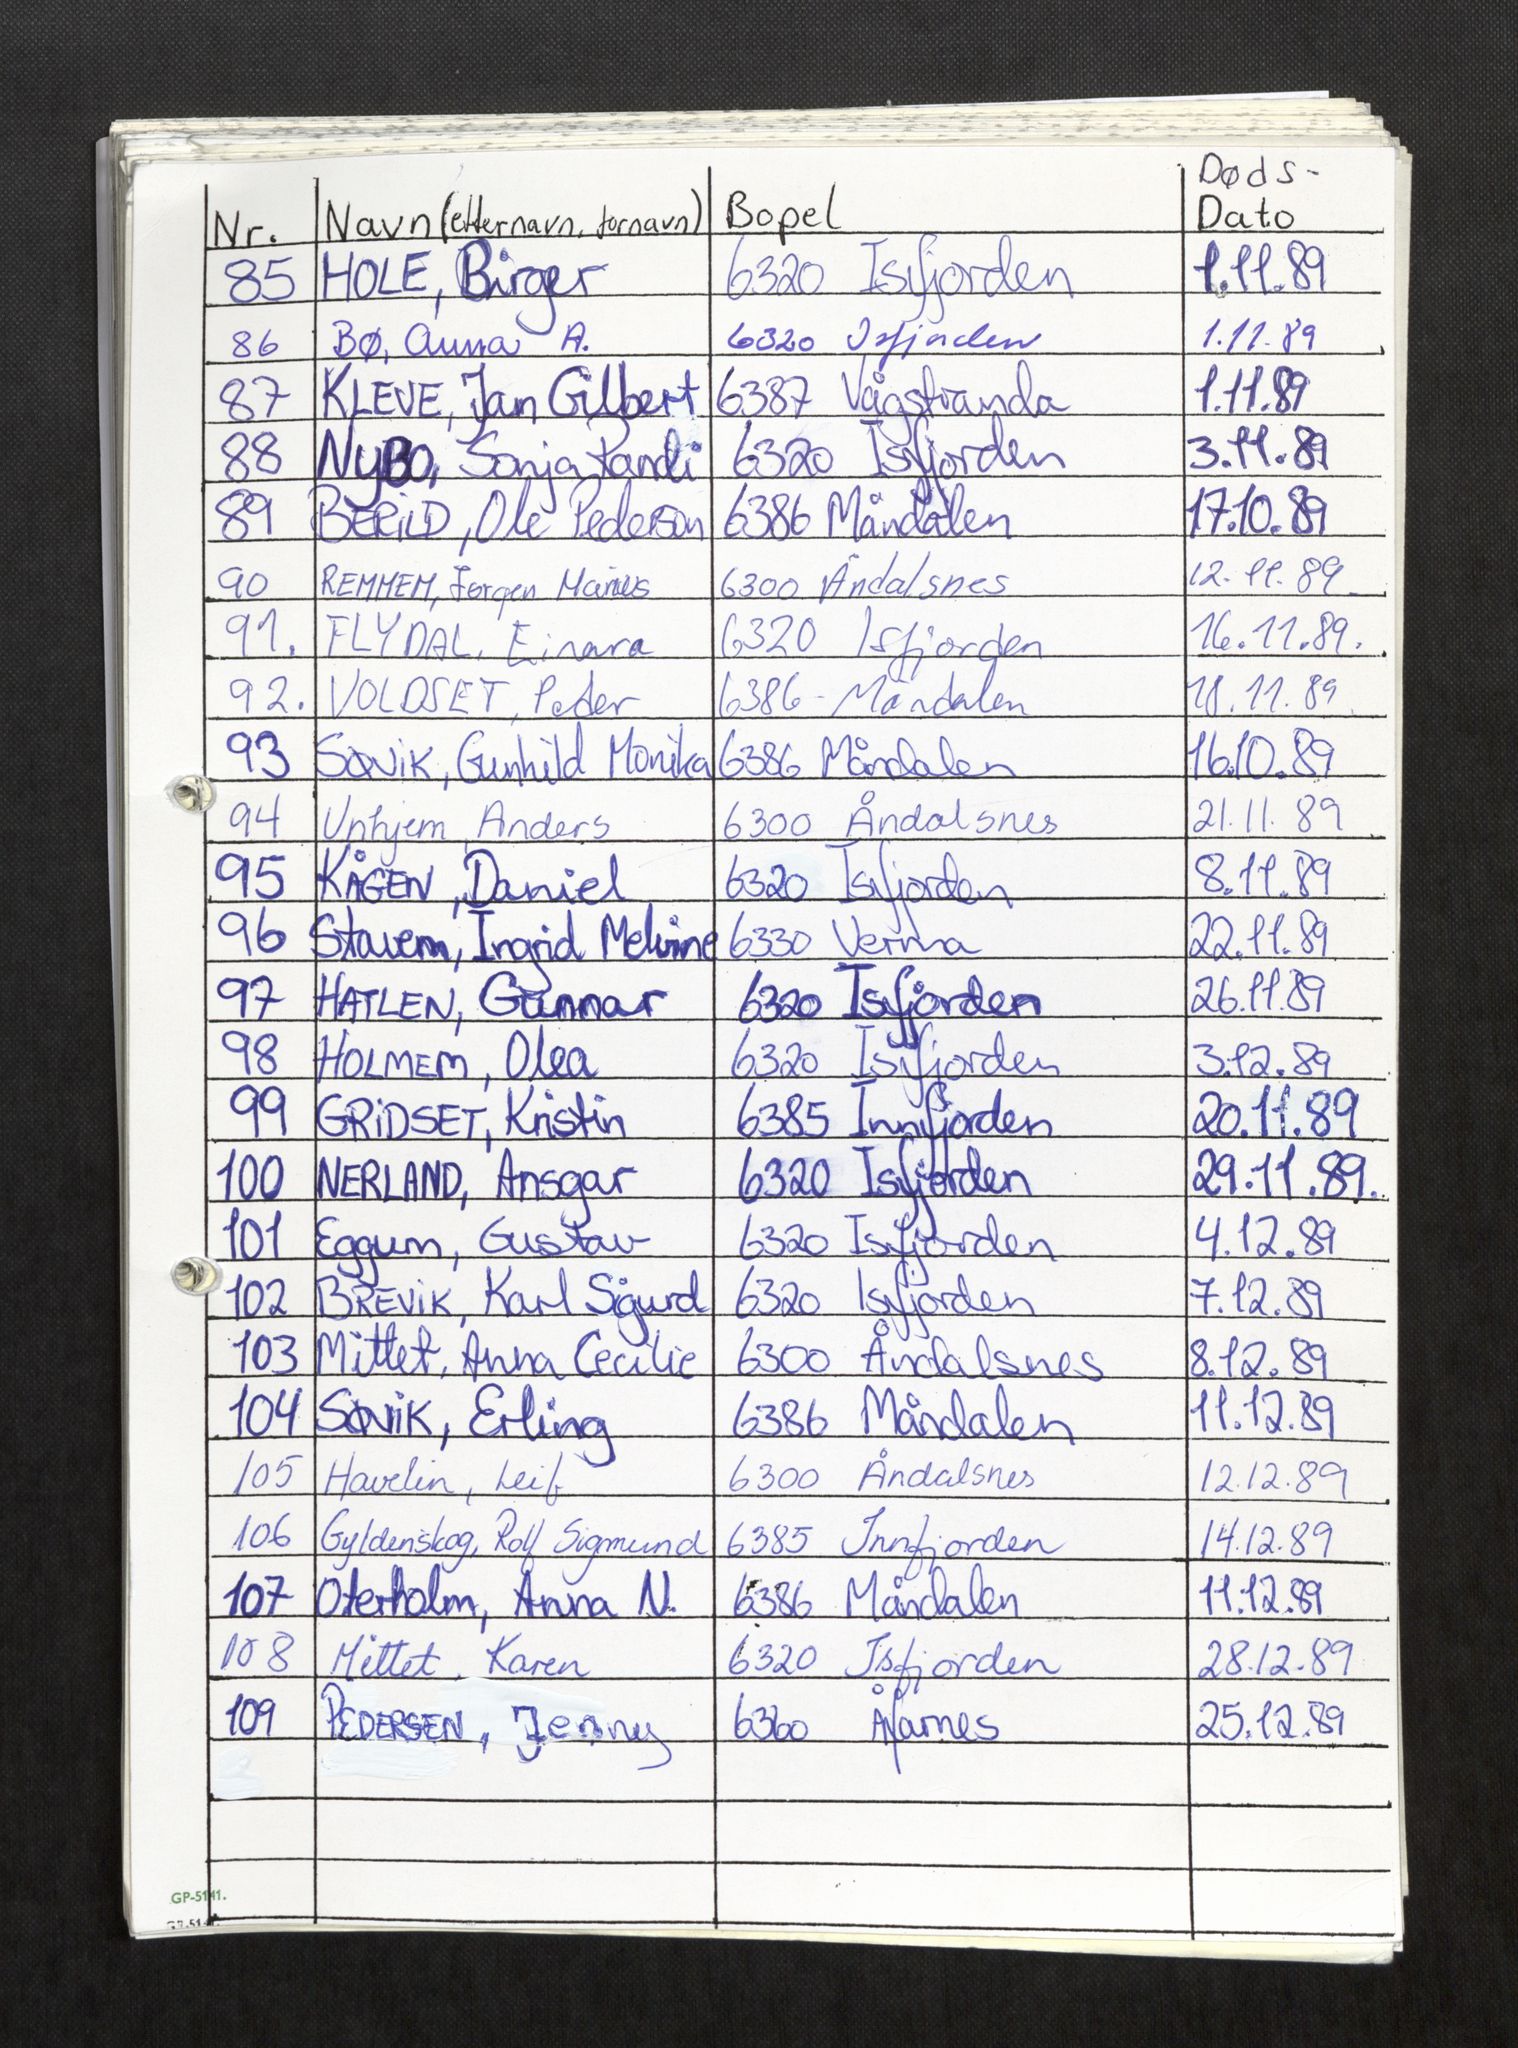 Nr. Navn (etternavn, fornavn) Bopel Døds-Dato
85 HOLE, Birger 6320 Isfjorden 1.11.89
86 BØ, Anna A. 6320 Isfjorden 1.11.89
87 KLEVE, Jan Gilbert 6387 Vågstranda 1.11.89
88 NyBO, Sonja Randi 6320 Isfjorden 3.11.89
89 BERiLD, Ole Pederson 6386 Måndalen 17.10.89
90 REMMEM, Jørgen Marius 6300 Åndalsnes 12.11.89.
91. FLYDAL, Einara 6320 Isfjorden 16.11.89.
92. VOLDSET, Peder 6386 - Måndalen 18.11.89.
93 SØViK, Gunhild Monika 6386 Måndalen 16.10.89
94 Unhjem, Anders 6300 Åndalsnes 21.11.89
95 KÅGEN, Daniel 6320 Isfjorden 8.11.89
96 Stavem, Ingrid Melvine 6330 Verma 22.11.89
97 HATLEN, Gunnar 6320 Isfjorden 26.11.89
98 HOLMEM, Olea 6320 Isfjorden 3.12.89
99 GRiDSET, Kristin 6385 Innfjorden 20.11.89
100 NERLAND, Ansgar 6320 Isfjorden 29.11.89.
101 Eggum, Gustav 6320 Isfjorden 4.12.89
102 BREViK, Karl Sigurd 6320 Isfjorden 7.12.89
103 Mittet, Anna Cecilie 6300 Åndalsnes 8.12.89
104 SØViK, Erling 6386 Måndalen 11.12.89
105 Havelin, Leif 6300 Åndalsnes 12.12.89
106 Gyldenskog, Rolf Sigmund 6385 Innfjorden 14.12.89
107 Oterholm, Anna N. 6386 Måndalen 11.12.89
108 Mittet, Karen 6320 Isfjorden 28.12.89
109 PEDERSEN, Jenny 6360 Åfarnes 25.12.89
GP-5141.